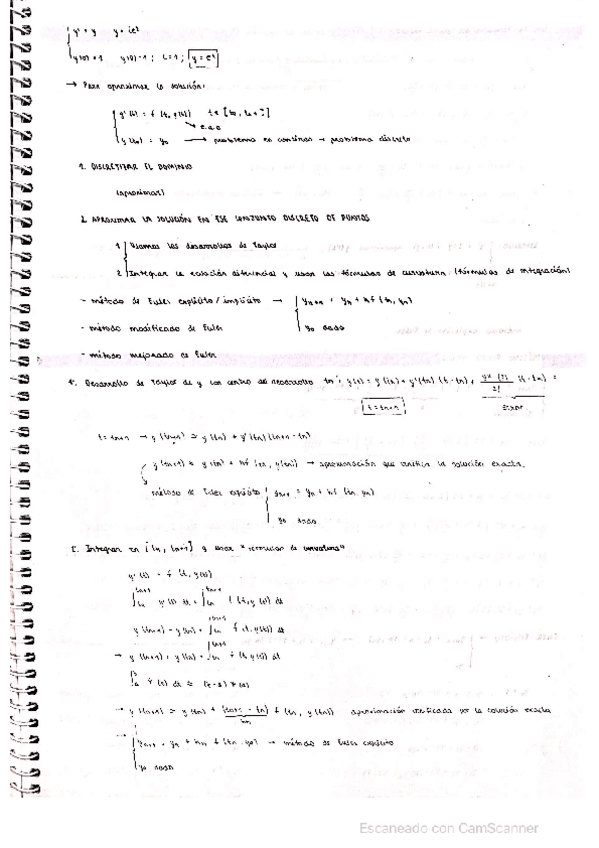 y' = y    y = ce^t
y(0) = 1    y(0) = 1 ; c = 1 ; y = e^t
→ Para aproximar la solución:
y'(t) = f(t, y(t))    t ∈ [t0, t0+T]
y(t0) = y0 → problema en continuo → problema discreto
1. DISCRETIZAR EL DOMINIO
(aproximar)
2. APROXIMAR LA SOLUCIÓN EN ESE CONJUNTO DISCRETO DE PUNTOS
1 Usamos los desarrollos de Taylor
2 Integrar la ecuación diferencial y usar las fórmulas de curvatura. (fórmulas de integración)
- método de Euler explícito/implícito → yn+1 = yn + hf(tn, yn)
y0 dado
- método modificado de Euler
- método mejorado de Euler
Desarrollo de Taylor de y con centro del desarrollo tn: y(t) = y(tn) + y'(tn)(t-tn) + (t-tn)
2!
t = tn+1    Error
t = tn+1 → y(tn+1) ≈ y(tn) + y'(tn)(tn+1 - tn)
y(tn+1) ≈ y(tn) + hf(tn, y(tn)) → aproximación que verifica la solución exacta.
método de Euler explícito yn+1 = yn + hf(tn, yn)
y0 dado
Integrar en [tn, tn+1] y usar "fórmulas de curvatura"
y'(t) = f(t, y(t))
∫ y'(t) dt = ∫ f(t, y(t)) dt
y(tn+1) - y(tn) = ∫ f(t, y(t)) dt
→ y(tn+1) = y(tn) + ∫ f(t, y(t)) dt
→ y(tn+1) ≈ y(tn) + (tn+1 - tn) f(tn, y(tn))    aproximación verificada por la solución exacta
hn
→ yn+1 = yn + hn f(tn, yn) → método de Euler explícito
y0 dado
Escaneado con CamScanner